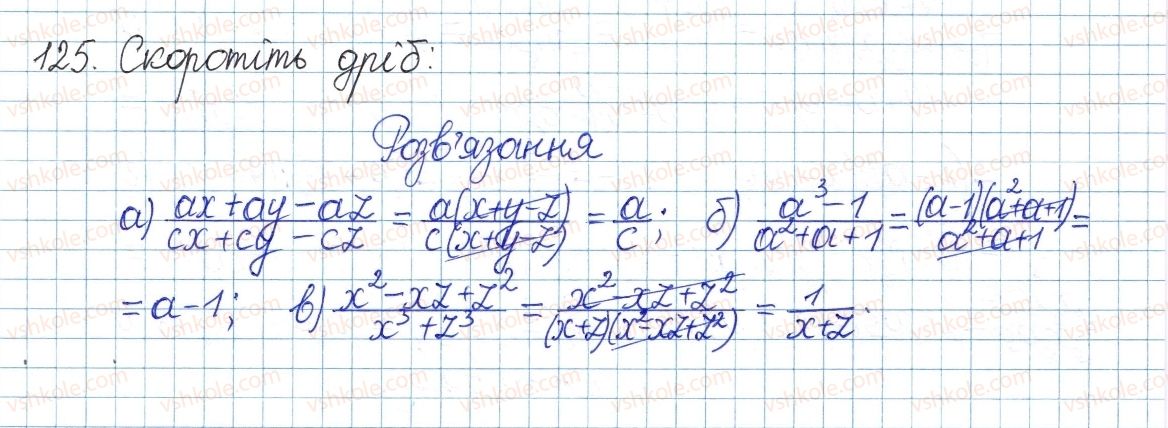 125. Скоротіть дріб:
Розв'язання
а) (ax+ay-az)/(cx+cy-cz) = a(x+y-z)/c(x+y-z) = a/c; б) (a³-1)/(a²+a+1) = (a-1)(a²+a+1)/(a²+a+1) =
= a-1; в) (x²-xz+z²)/(x³+z³) = (x²-xz+z²)/(x+z)(x²-xz+z²) = 1/(x+z).